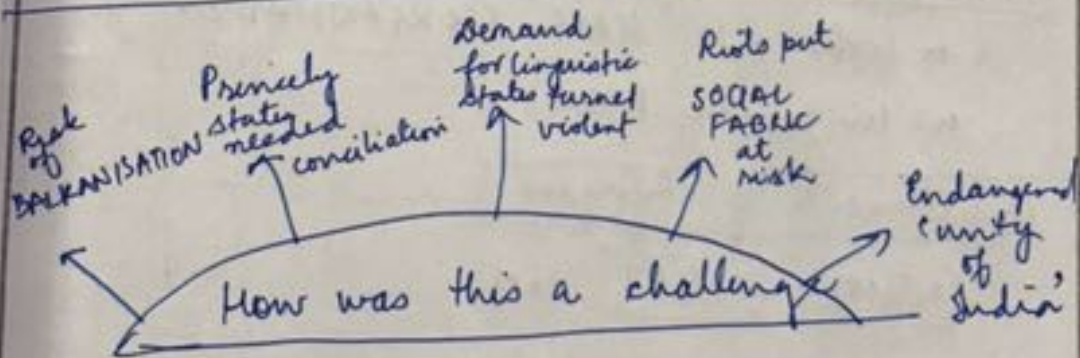 Risk
of
BALKANISATION
Princely
states
needed
conciliation
Demand
for linguistic
states turnet
violent
Riots put
SOCIAL
FABRIC
at
risk
Endangered
'unity
of
India'
How was this a challeng